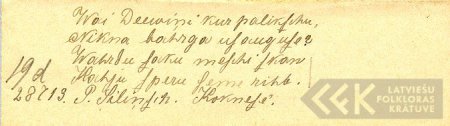 Wai Deewiņi kur palikšchu,
Nikna bahrga usauguse?
Wahrdu saku meschi skan
19d Kahju speru seme rihb.
28713. P. Siliņsch. Koknesē.
LATVIEŠU
FOLKLORAS
KRĀTUVE